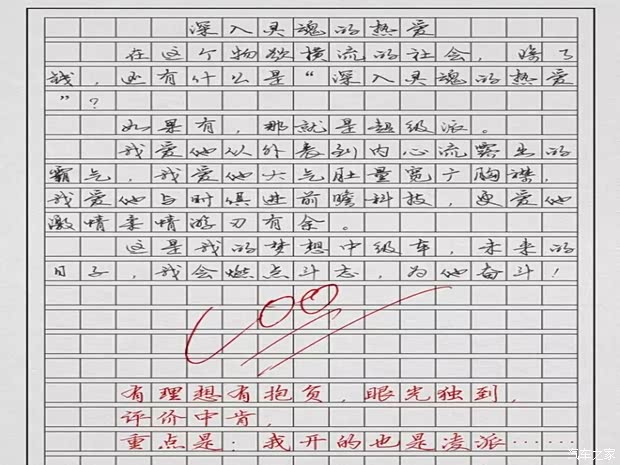 深入灵魂的热爱
在这个物欲横流的社会，除了
钱，还有什么是“深入灵魂的热爱
”？
如果有，那就是超级派。
我爱他从外表到内心流露出的
霸气，我爱他大气肚量宽广胸襟，
我爱他与时俱进前瞻科技，更爱他
激情柔情游刃有余。
这是我的梦想中级车，未来的
日子，我会燃点斗志，为他奋斗！
100
有理想有抱负，眼光独到，
评价中肯，
重点是：我开的也是凌派……
汽车之家